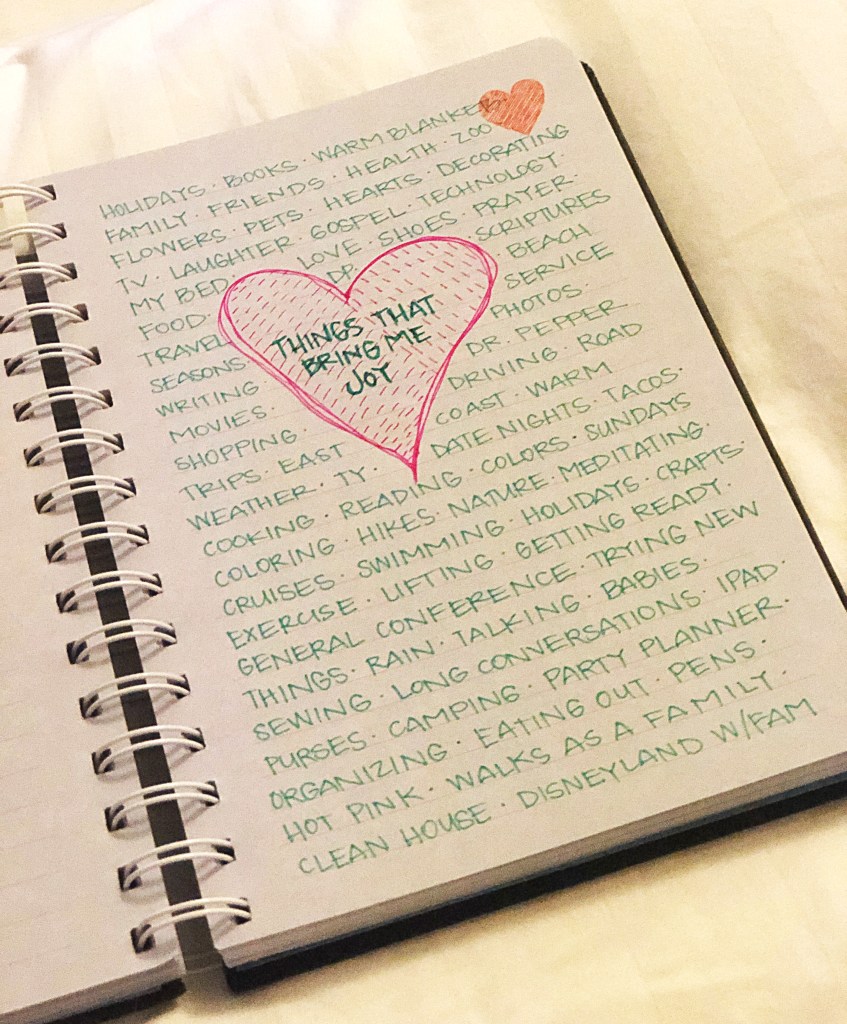 HOLIDAYS · BOOKS · WARM BLANKETS·
FAMILY · FRIENDS · HEALTH · ZOO
FLOWERS · PETS · HEARTS · DECORATING
TV · LAUGHTER · GOSPEL · TECHNOLOGY·
MY BED· LOVE · SHOES · PRAYER·
FOOD· DP· SCRIPTURES
TRAVEL BEACH
SEASONS· SERVICE
WRITING · PHOTOS·
MOVIES· DR. PEPPER
SHOPPING · DRIVING · ROAD
TRIPS · EAST COAST · WARM
WEATHER · TY· DATE NIGHTS · TACOS·
THINGS THAT
BRING ME
JOY
COOKING · READING · COLORS · SUNDAYS
COLORING · HIKES · NATURE · MEDITATING·
CRUISES · SWIMMING · HOLIDAYS · CRAFTS·
EXERCISE · LIFTING · GETTING READY·
GENERAL CONFERENCE · TRYING NEW
THINGS · RAIN · TALKING · BABIES·
SEWING · LONG CONVERSATIONS · IPAD·
PURSES · CAMPING · PARTY PLANNER·
ORGANIZING · EATING OUT · PENS·
HOT PINK · WALKS AS A FAMILY·
CLEAN HOUSE · DISNEYLAND W/FAM